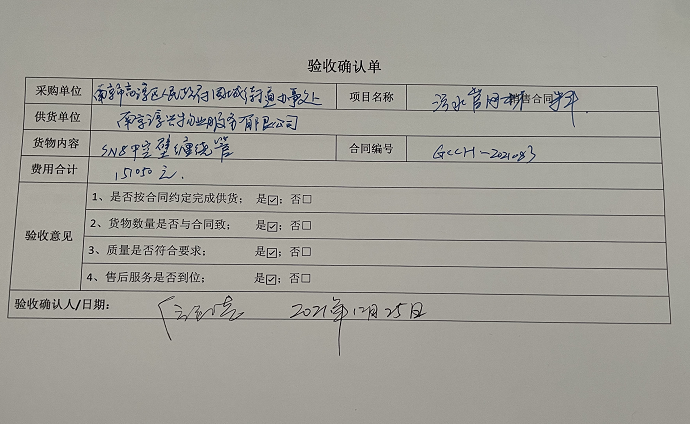 验收确认单
采购单位 南京市高淳区人民政府固城街道办事处 项目名称 污水管网 销售合同
供货单位 南京淳兴物业服务有限公司
货物内容 SN8中空壁缠绕管 合同编号 GCCH-2021083
费用合计 151050元.
验收意见
1、是否按合同约定完成供货； 是☑；否☐
2、货物数量是否与合同致； 是☑；否☐
3、质量是否符合要求； 是☑；否☐
4、售后服务是否到位； 是☑；否☐
验收确认人/日期： 2021年12月25日